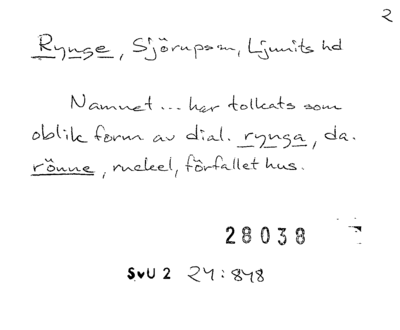 2
Rynge, Sjörups sn, Ljunits hd
Namnet... har tolkats som
oblik form av dial. rynga, da.
rönne, ruckel, förfallet hus.
28038
SvU 2 24:848